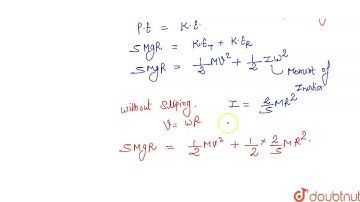 P.t = K.t.
5MgR = K.t_T + K.t_R
5MgR = 1/2 MV² + 1/2 Iω²
Moment of
Inertia
without slipping. I = 2/5 MR²
V = ωR
5MgR = 1/2 MV² + 1/2 × 2/5 MR².
doubtnut